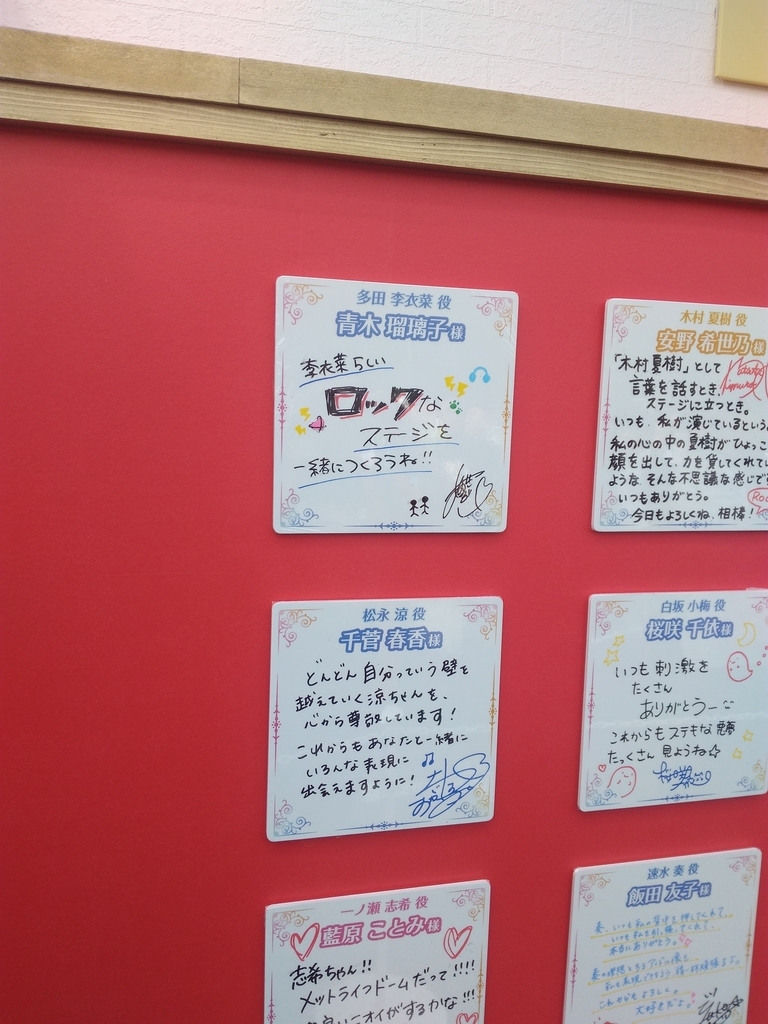 多田 李衣菜 役
青木 瑠璃子 様
李衣菜らしい
ロックな
ステージを
一緒につくろうね!!
木村 夏樹 役
安野 希世乃 様
「木村夏樹」として
言葉を話すとき、
ステージに立つとき。
いつも、私が演じているという
私の心の中の夏樹がひょっこ
顔を出して、力を貸してくれてい
ような、そんな不思議な感じで
いつもありがとう。
今日もよろしくね、相棒!
松永 涼 役
千菅 春香 様
どんどん自分っていう壁を
越えていく涼ちゃんを、
心から尊敬しています!
これからもあなたと一緒に
いろんな表現に
出会えますように!
白坂 小梅 役
桜咲 千依 様
いつも刺激を
たくさん
ありがとうー
これからもステキな悪夢
たっくさん見ようね☆
一ノ瀬 志希 役
藍原 ことみ 様
志希ちゃん!!
メットライフドームだって!!!!
良いニオイがするかな!!!
速水 奏 役
飯田 友子 様
奏、いつも私の背中を押してくれて、
本当にありがとう。
これからもよろしく。
大好きだよ。